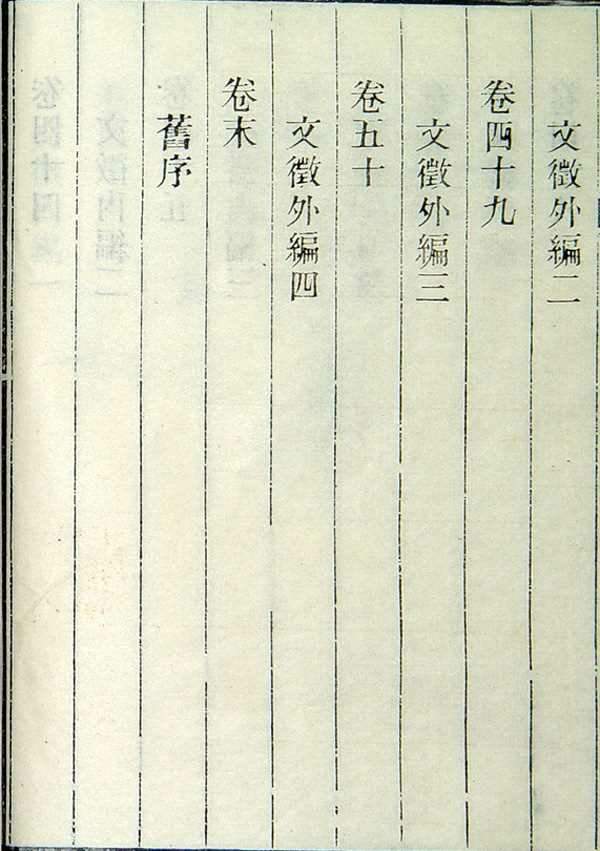 文徵外編二
卷四十九
文徵外編三
卷五十
文徵外編四
卷末
舊序